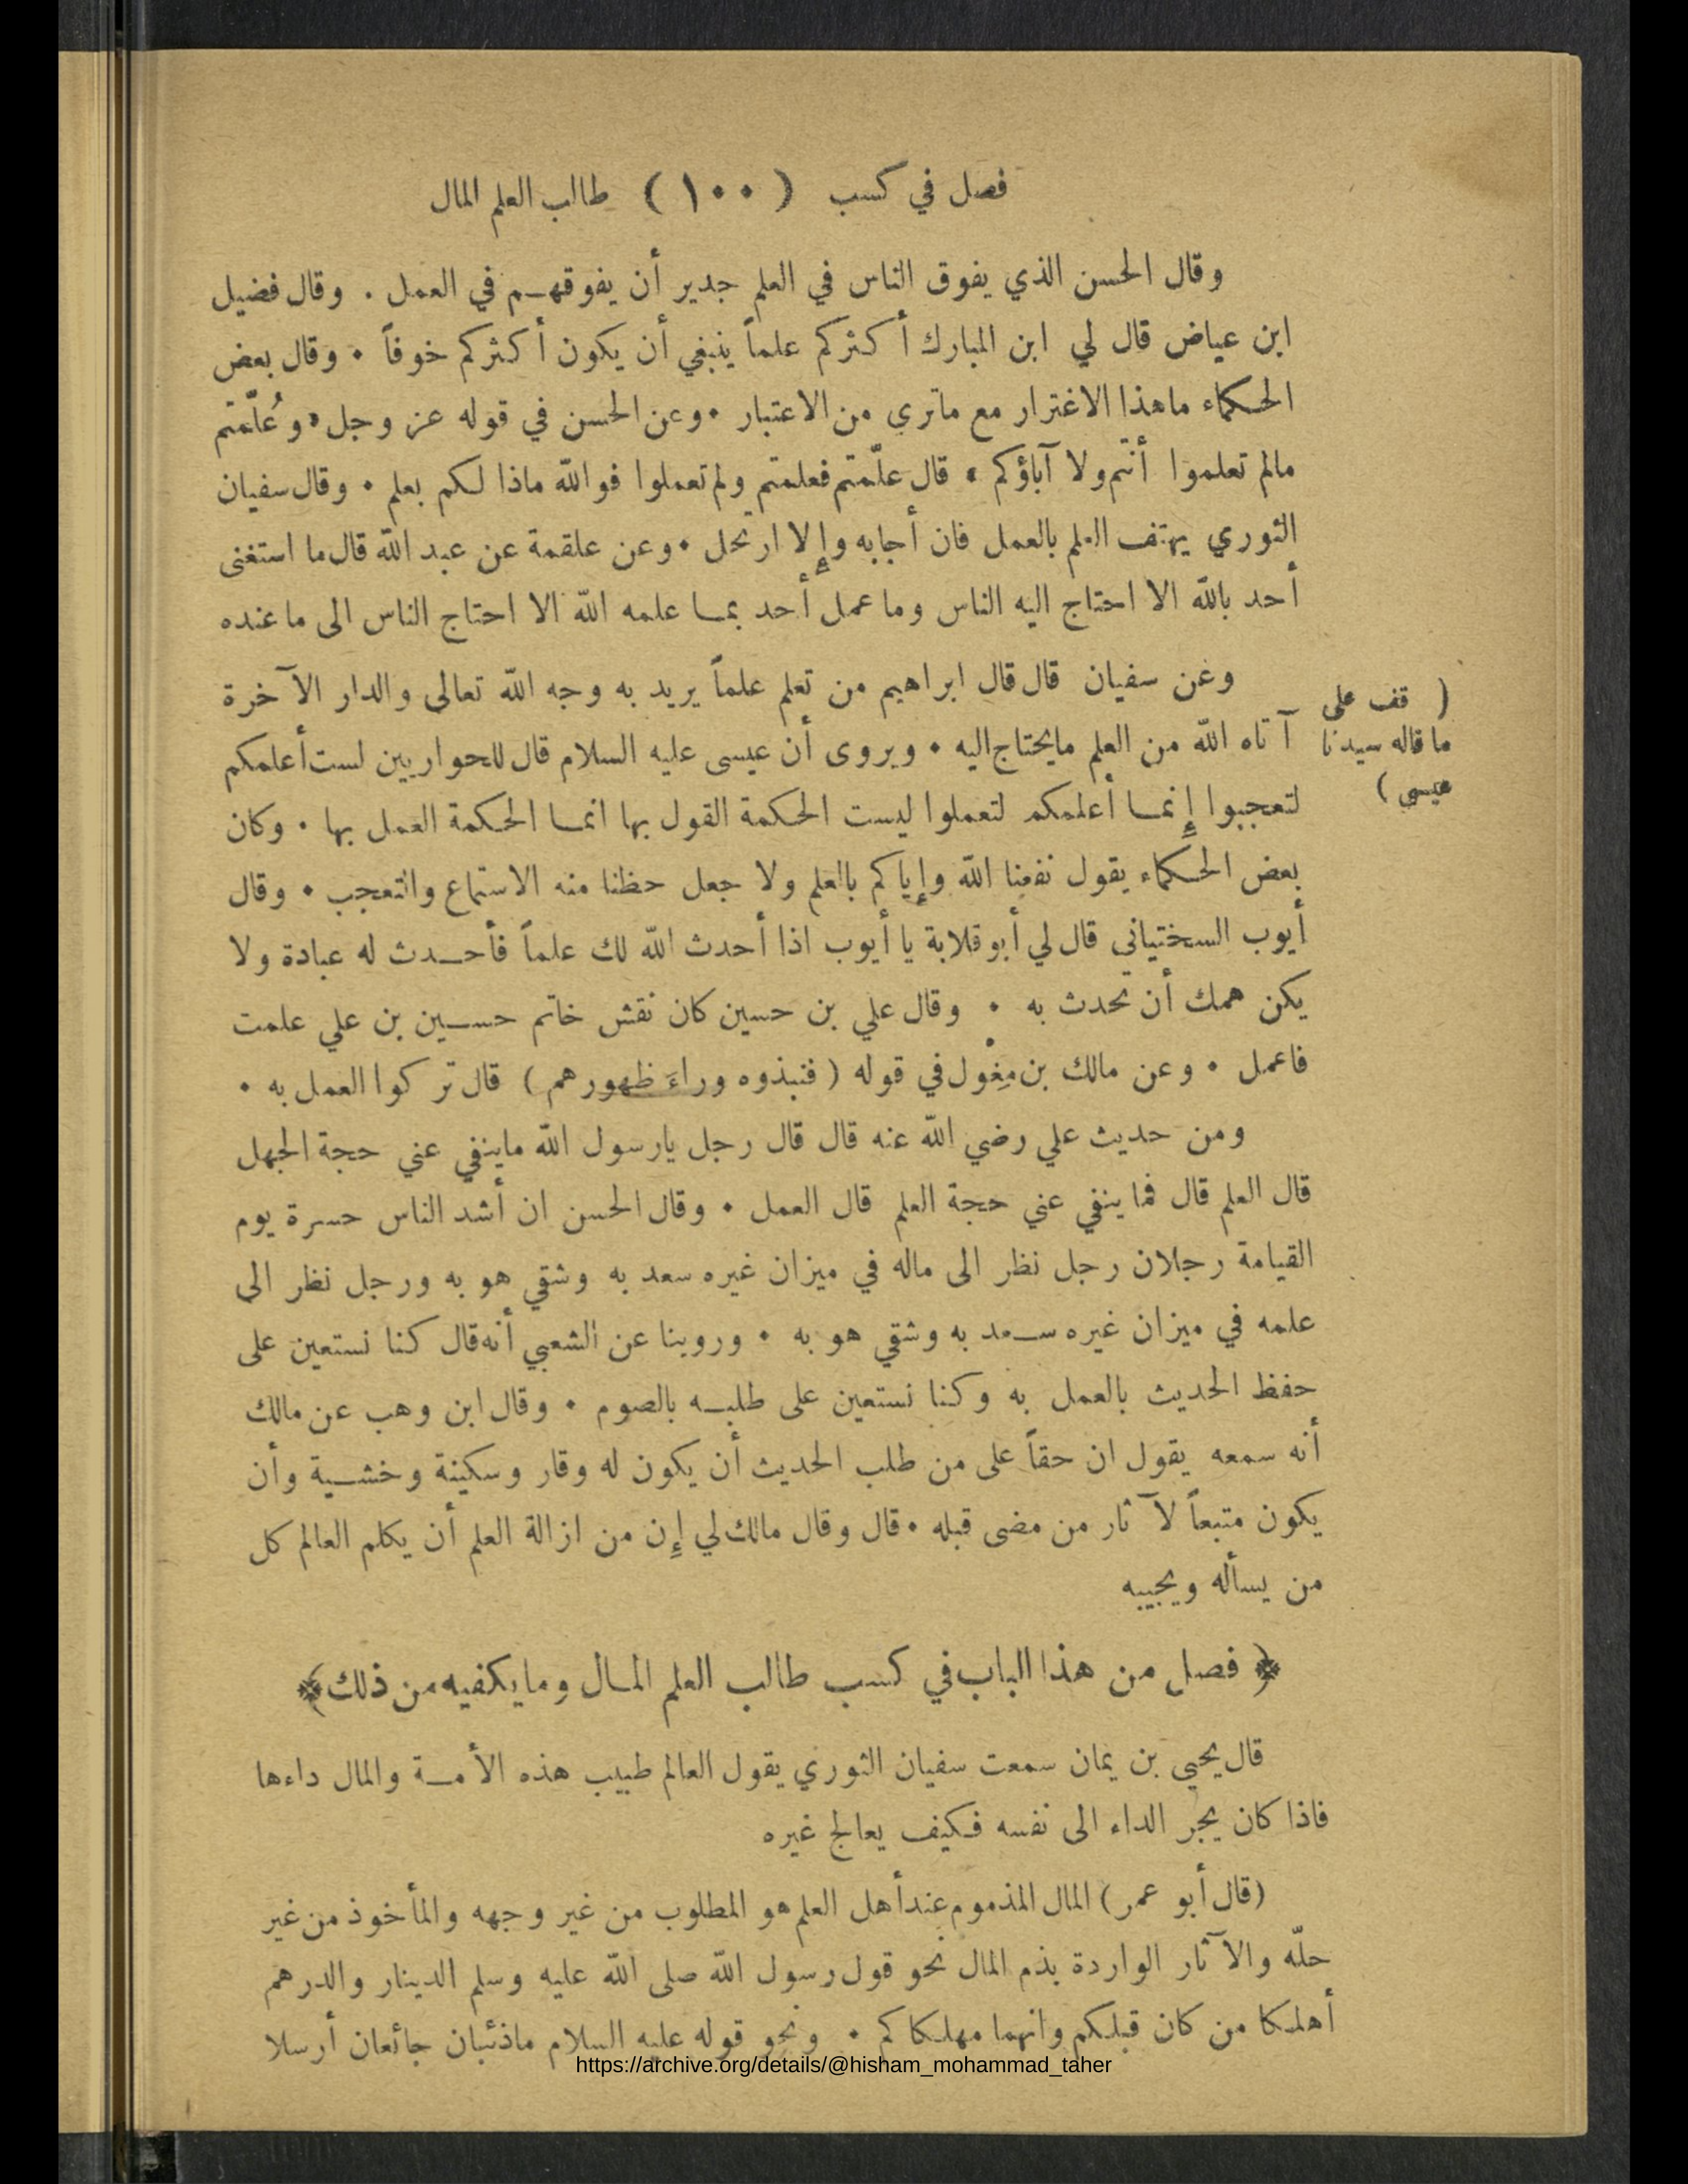 فصل في كسب ( ١٠٠ ) طالب العلم المال
وقال الحسن الذي يفوق الناس في العلم جدير أن يفوقهم في العمل . وقال فضيل
ابن عياض قال لي ابن المبارك أكثركم علماً ينبغي أن يكون أكثركم خوفاً . وقال بعض
الحكماء ماهذا الاغترار مع ماترى من الاعتبار . وعن الحسن في قوله عز وجل « وعُلّمتم
مالم تعلموا أنتم ولا آباؤكم » قال علّمتم فعلمتم ولم تعملوا فوالله ماذا لكم بعلم . وقال سفيان
الثوري يهتف العلم بالعمل فان أجابه وإلا ارتحل . وعن علقمة عن عبد الله قال ما استغنى
أحد بالله الا احتاج اليه الناس وما عمل أحد بما علمه الله الا احتاج الناس الى ما عنده
وعن سفيان قال قال ابراهيم من تعلم علماً يريد به وجه الله تعالى والدار الآخرة
( قف على
ما قاله سيدنا
عيسى )
آتاه الله من العلم مايحتاج اليه . ويروى أن عيسى عليه السلام قال للحواريين لست أعلمكم
لتعجبوا إنما أعلمكم لتعملوا ليست الحكمة القول بها انما الحكمة العمل بها . وكان
بعض الحكماء يقول نفعنا الله وإياكم بالعلم ولا جعل حظنا منه الاستماع والتعجب . وقال
أيوب السختياني قال لي أبو قلابة يا أيوب اذا أحدث الله لك علماً فأحدث له عبادة ولا
يكن همك أن تحدث به . وقال علي بن حسين كان نقش خاتم حسين بن علي علمت
فاعمل . وعن مالك بن مِغْول في قوله ( فنبذوه وراءَ ظهورهم ) قال تركوا العمل به .
ومن حديث علي رضي الله عنه قال قال رجل يارسول الله ماينفي عني حجة الجهل
قال العلم قال فما ينفي عني حجة العلم قال العمل . وقال الحسن ان أشد الناس حسرة يوم
القيامة رجلان رجل نظر الى ماله في ميزان غيره سعد به وشقي هو به ورجل نظر الى
علمه في ميزان غيره سعد به وشقي هو به . وروينا عن الشعبي أنه قال كنا نستعين على
حفظ الحديث بالعمل به وكنا نستعين على طلبه بالصوم . وقال ابن وهب عن مالك
أنه سمعه يقول ان حقاً على من طلب الحديث أن يكون له وقار وسكينة وخشية وأن
يكون متبعاً لآثار من مضى قبله . قال وقال مالك لي إن من ازالة العلم أن يكلم العالم كل
من يسأله ويجيبه
﴿ فصل من هذا الباب في كسب طالب العلم المال وما يكفيه من ذلك ﴾
قال يحيى بن يمان سمعت سفيان الثوري يقول العالم طبيب هذه الأمة والمال داءها
فاذا كان يجر الداء الى نفسه فكيف يعالج غيره
(قال أبو عمر) المال المذموم عند أهل العلم هو المطلوب من غير وجهه والمأخوذ من غير
حلّه والآثار الواردة بذم المال نحو قول رسول الله صلى الله عليه وسلم الدينار والدرهم
أهلكا من كان قبلكم وانهما مهلكاكم . ونحو قوله عليه السلام ماذئبان جائعان أرسلا
https://archive.org/details/@hisham_mohammad_taher